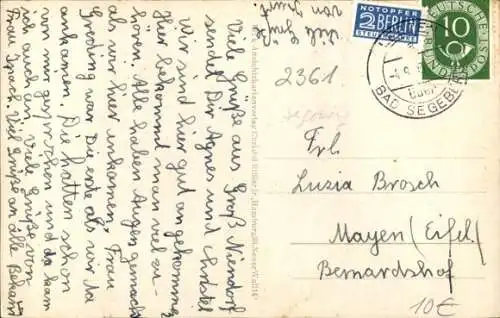 Viele Grüße aus Groß Niendorf
sendet Dir Agnes und Christel
Wir sind hier gut angekommen
Hier bekommt man viel zu-
hören. Alle haben Augen gemacht
als wir hier ankamen. Frau
Greding war die erste als wir da
ankamen. Die hatten schon
von mir gesprochen und da kam
ich auch an. Viele Grüße von
Frau Ipach. Viel Grüße an alle Bekannt
Viele Grüße
von
NOTOPFER
2 BERLIN
STEUERMARKE
DEUTSCHE
BUNDESPOST
10
BAD SEGEBERG
2361
Segeberg
Frl.
Luzia Brosch
Mayen (Eifel)
Bernardshof
10€